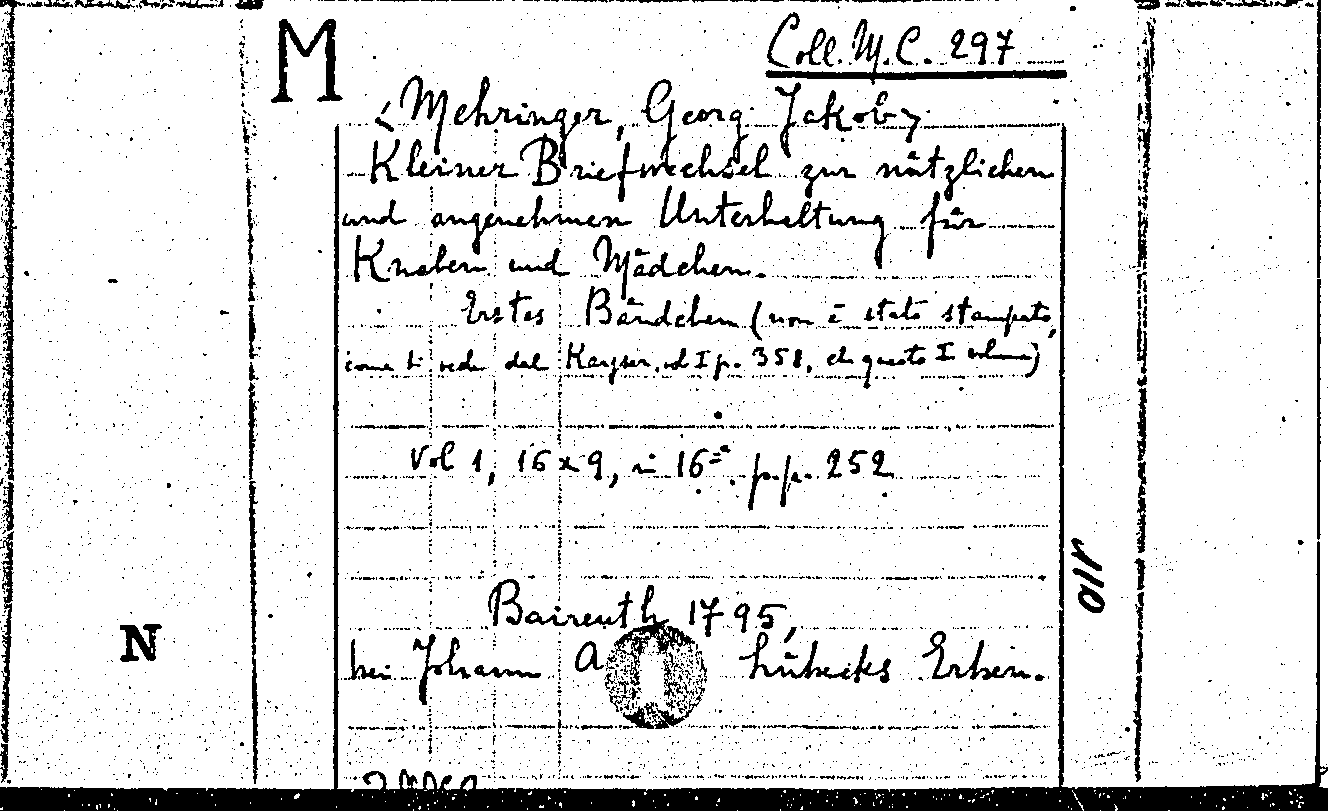 M
Coll. M. C. 297
<Mehringer, Georg Jakob>
Kleiner Briefwechsel zur nützlichen
und angenehmen Unterhaltung für
Knaben und Mädchen.
Erstes Bändchen (non è stato stampato,
come si vede dal Kayser, vol I p. 358, che questo I volume)
Vol 1, 16 x 9, in 16° p.p. 252
Baireuth 1795,
bei Johann A Lübecks Erben.
N